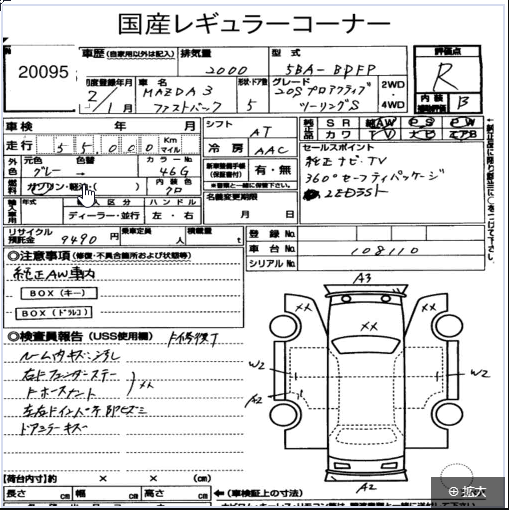 国産レギュラーコーナー
20095
車歴 (自家用以外は記入) 排気量 型式 評価点
2000 5BA-BPFP R
初度登録年月 車名 形状・ドア数 グレード 2WD・4WD 内装 B
2/1月 MAZDA3 ファストバック 5 20S プロアクティブ ツーリングS
車検 年 月 シフト AT
純正品 SR 純AW PS PW
カワ TV ナビ エアB
走行 55,000 Km マイル 冷房 AAC
セールスポイント
純正ナビ・TV
360°セーフティパッケージ
外色 元色 色替 カラーNo.
グレー → 46G
新車整備手帳 (保証書付) 有・無
燃料 ガソリン・軽油・( ) 内装色 クロ
※書類と一緒に保管下さい。
輸入車用 年式 区分 ハンドル
ディーラー・並行 左・右
名義変更期限 月 日
リサイクル預託金 9490 円 乗車定員 人 積載量 t
登録No.
車台No. 108110
シリアルNo.
◎注意事項 (修復・不具合箇所および状態等)
純正AW車内
BOX (キー)
BOX (ドラレコ)
◎検査員報告 (USS使用欄)
ルーム内キズ汚れ
右Fフェンダーステー
ドアステーキズ
XX
A3
XX XX XX
W2 W2
A2
A2
【荷台内寸】約 × × (cm)
長さ cm 幅 cm 高さ cm ←(車検証上の寸法)
拡大